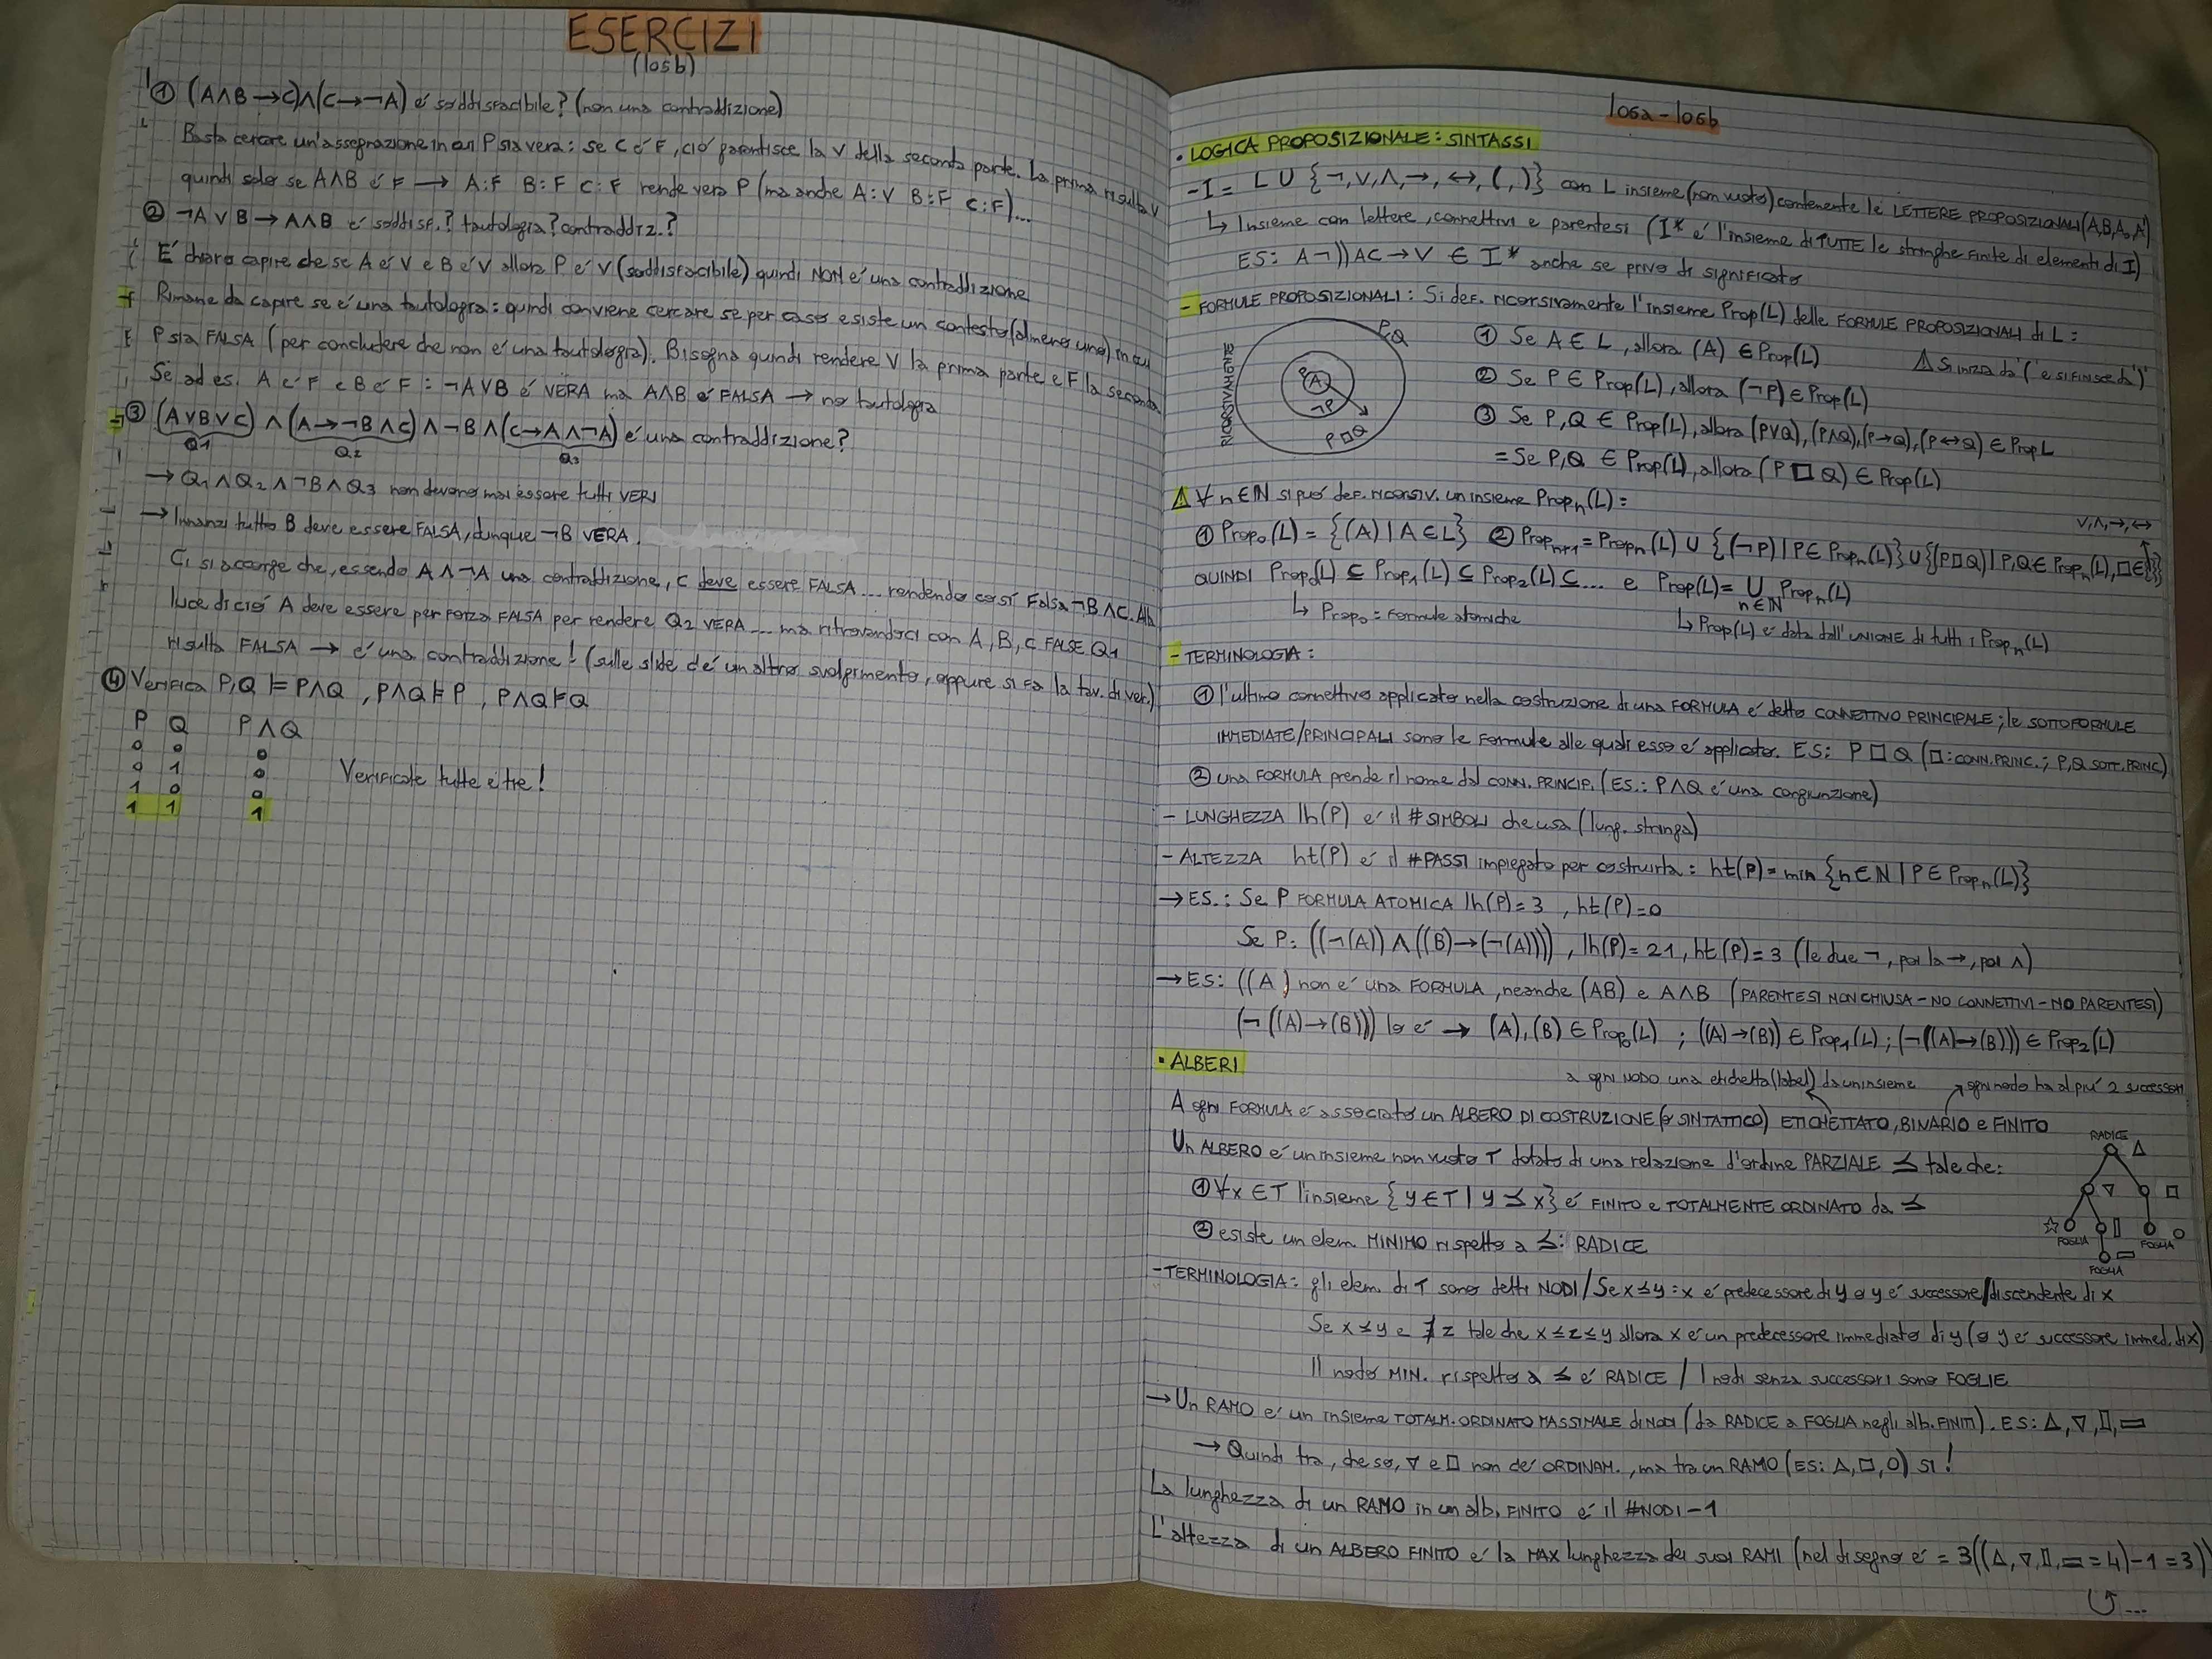 ESERCIZI
(105b)
① (A∧B→C)∧(C→¬A) é soddisfacibile? (non una contraddizione)
Basta cercare un'assegnazione in cui P sia vera: se C é F, ció garantisce la V della seconda parte. La prima risulta V
quindi solo se A∧B é F → A:F B:F C:F rende vera P (ma anche A:V B:F C:F)...
② ¬A∨B→A∧B é soddisf.? tautologia? contraddiz.?
É chiaro capire che se A é V e B é V allora P é V (soddisfacibile) quindi NON é una contraddizione
Rimane da capire se é una tautologia: quindi conviene cercare se per caso esiste un contesto (almeno uno) in cui
P sia FALSA (per concludere che non é una tautologia). Bisogna quindi rendere V la prima parte e F la seconda
Se ad es. A é F e B é F: ¬A∨B é VERA ma A∧B é FALSA → no tautologia
③ (A∨B∨C) ∧ (A→¬B∧C) ∧ ¬B ∧ (C→A∧¬A) é una contraddizione?
Q1 Q2 Q3
→ Q1∧Q2∧¬B∧Q3 non devono mai essere tutti VERI
→ Innanzi tutto B deve essere FALSA, dunque ¬B VERA.
Ci si accorge che, essendo A∧¬A una contraddizione, C deve essere FALSA... rendendo così Falsa ¬B∧C. Alla
luce di ció A deve essere per forza FALSA per rendere Q2 VERA... ma ritrovandoci con A, B, C FALSE Q1
risulta FALSA → é una contraddizione! (sulle slide c'é un altro svolgimento, oppure si fa la tav. di ver.)
④ Verifica P,Q ⊨ P∧Q , P∧Q ⊨ P , P∧Q ⊨ Q
P Q P∧Q
0 0 0
0 1 0
1 0 0
1 1 1
Verificate tutte e tre!
106a-106b
• LOGICA PROPOSIZIONALE: SINTASSI
- I = L∪{¬,∨,∧,→,↔,(,)} con L insieme (non vuoto) contenente le LETTERE PROPOSIZIONALI (A,B,A0,A')
↳ Insieme con lettere, connettivi e parentesi (I* é l'insieme di TUTTE le stringhe finite di elementi di I)
ES: A¬))AC→∨ ∈ I* anche se privo di significato
- FORMULE PROPOSIZIONALI: Si def. ricorsivamente l'insieme Prop(L) delle FORMULE PROPOSIZIONALI di L:
RICORSIVAMENTE
P,Q
P
(A)
¬P
P□Q
① Se A∈L, allora (A) ∈ Prop(L)
⚠ Si inizia da '(' e si finisce da ')'
② Se P∈Prop(L), allora (¬P)∈Prop(L)
③ Se P,Q ∈ Prop(L), allora (P∨Q),(P∧Q),(P→Q),(P↔Q) ∈ Prop L
= Se P,Q ∈ Prop(L), allora (P□Q) ∈ Prop(L)
⚠ ∀n∈ℕ si puó def. ricorsiv. un insieme Propn(L):
∨,∧,→,↔
① Prop0(L) = {(A)|A∈L} ② Propn+1 = Propn(L) ∪ {(¬P)|P∈Propn(L)}∪{(P□Q)|P,Q∈Propn(L),□∈{}}
QUINDI Prop0(L) ⊆ Prop1(L) ⊆ Prop2(L) ⊆... e Prop(L) = ∪ Propn(L)
n∈ℕ
↳ Prop0 = Formule atomiche
↳ Prop(L) é data dall'UNIONE di tutti i Propn(L)
- TERMINOLOGIA:
① l'ultimo connettivo applicato nella costruzione di una FORMULA é detto CONNETTIVO PRINCIPALE; le SOTTOFORMULE
IMMEDIATE/PRINCIPALI sono le formule alle quali esso é applicato. ES: P□Q (□: CONN.PRINC.; P,Q SOTT.PRINC)
② una FORMULA prende il nome dal CONN. PRINCIP. (ES.: P∧Q é una congiunzione)
- LUNGHEZZA lh(P) é il #SIMBOLI che usa (lung. stringa)
- ALTEZZA ht(P) é il #PASSI impiegato per costruirla: ht(P) = min {n∈ℕ | P∈Propn(L)}
→ ES.: Se P FORMULA ATOMICA lh(P)=3 , ht(P)=0
Se P: ((¬(A))∧((B)→(¬(A)))) , lh(P)=21, ht(P)=3 (le due ¬, poi la →, poi ∧)
→ ES: ((A) non é una FORMULA, neanche (AB) e A∧B (PARENTESI NON CHIUSA - NO CONNETTIVI - NO PARENTESI)
(¬((A)→(B))) lo é → (A),(B)∈Prop0(L) ; ((A)→(B))∈Prop1(L); (¬((A)→(B)))∈Prop2(L)
• ALBERI
a ogni NODO una etichetta (label) da un insieme ogni nodo ha al piú 2 successori
A ogni FORMULA é associato un ALBERO DI COSTRUZIONE (o SINTATTICO) ETICHETTATO, BINARIO e FINITO
RADICE △
Un ALBERO é un insieme non vuoto T dotato di una relazione d'ordine PARZIALE ≤ tale che:
① ∀x∈T l'insieme {y∈T | y≤x} é FINITO e TOTALMENTE ORDINATO da ≤
② esiste un elem. MINIMO rispetto a ≤: RADICE
FOGLIA FOGLIA
FOGLIA
- TERMINOLOGIA: gli elem. di T sono detti NODI / Se x≤y: x é predecessore di y o y é successore/discendente di x
Se x≤y e ∄z tale che x≤z≤y allora x é un predecessore immediato di y (o y é successore immed. di x)
Il nodo MIN. rispetto a ≤ é RADICE / I nodi senza successori sono FOGLIE
→ Un RAMO é un insieme TOTALM. ORDINATO MASSIMALE di NODI (da RADICE a FOGLIA negli alb. FINITI). ES: △,▽,▯,▭
→ Quindi tra, che so, ▽ e □ non c'é ORDINAM., ma tra un RAMO (ES: △,□,O) SI!
La lunghezza di un RAMO in un alb. FINITO é il #NODI-1
L'altezza di un ALBERO FINITO é la MAX lunghezza dei suoi RAMI (nel disegno é = 3((△,▽,▯,▭ = 4)-1=3))
↺ ...